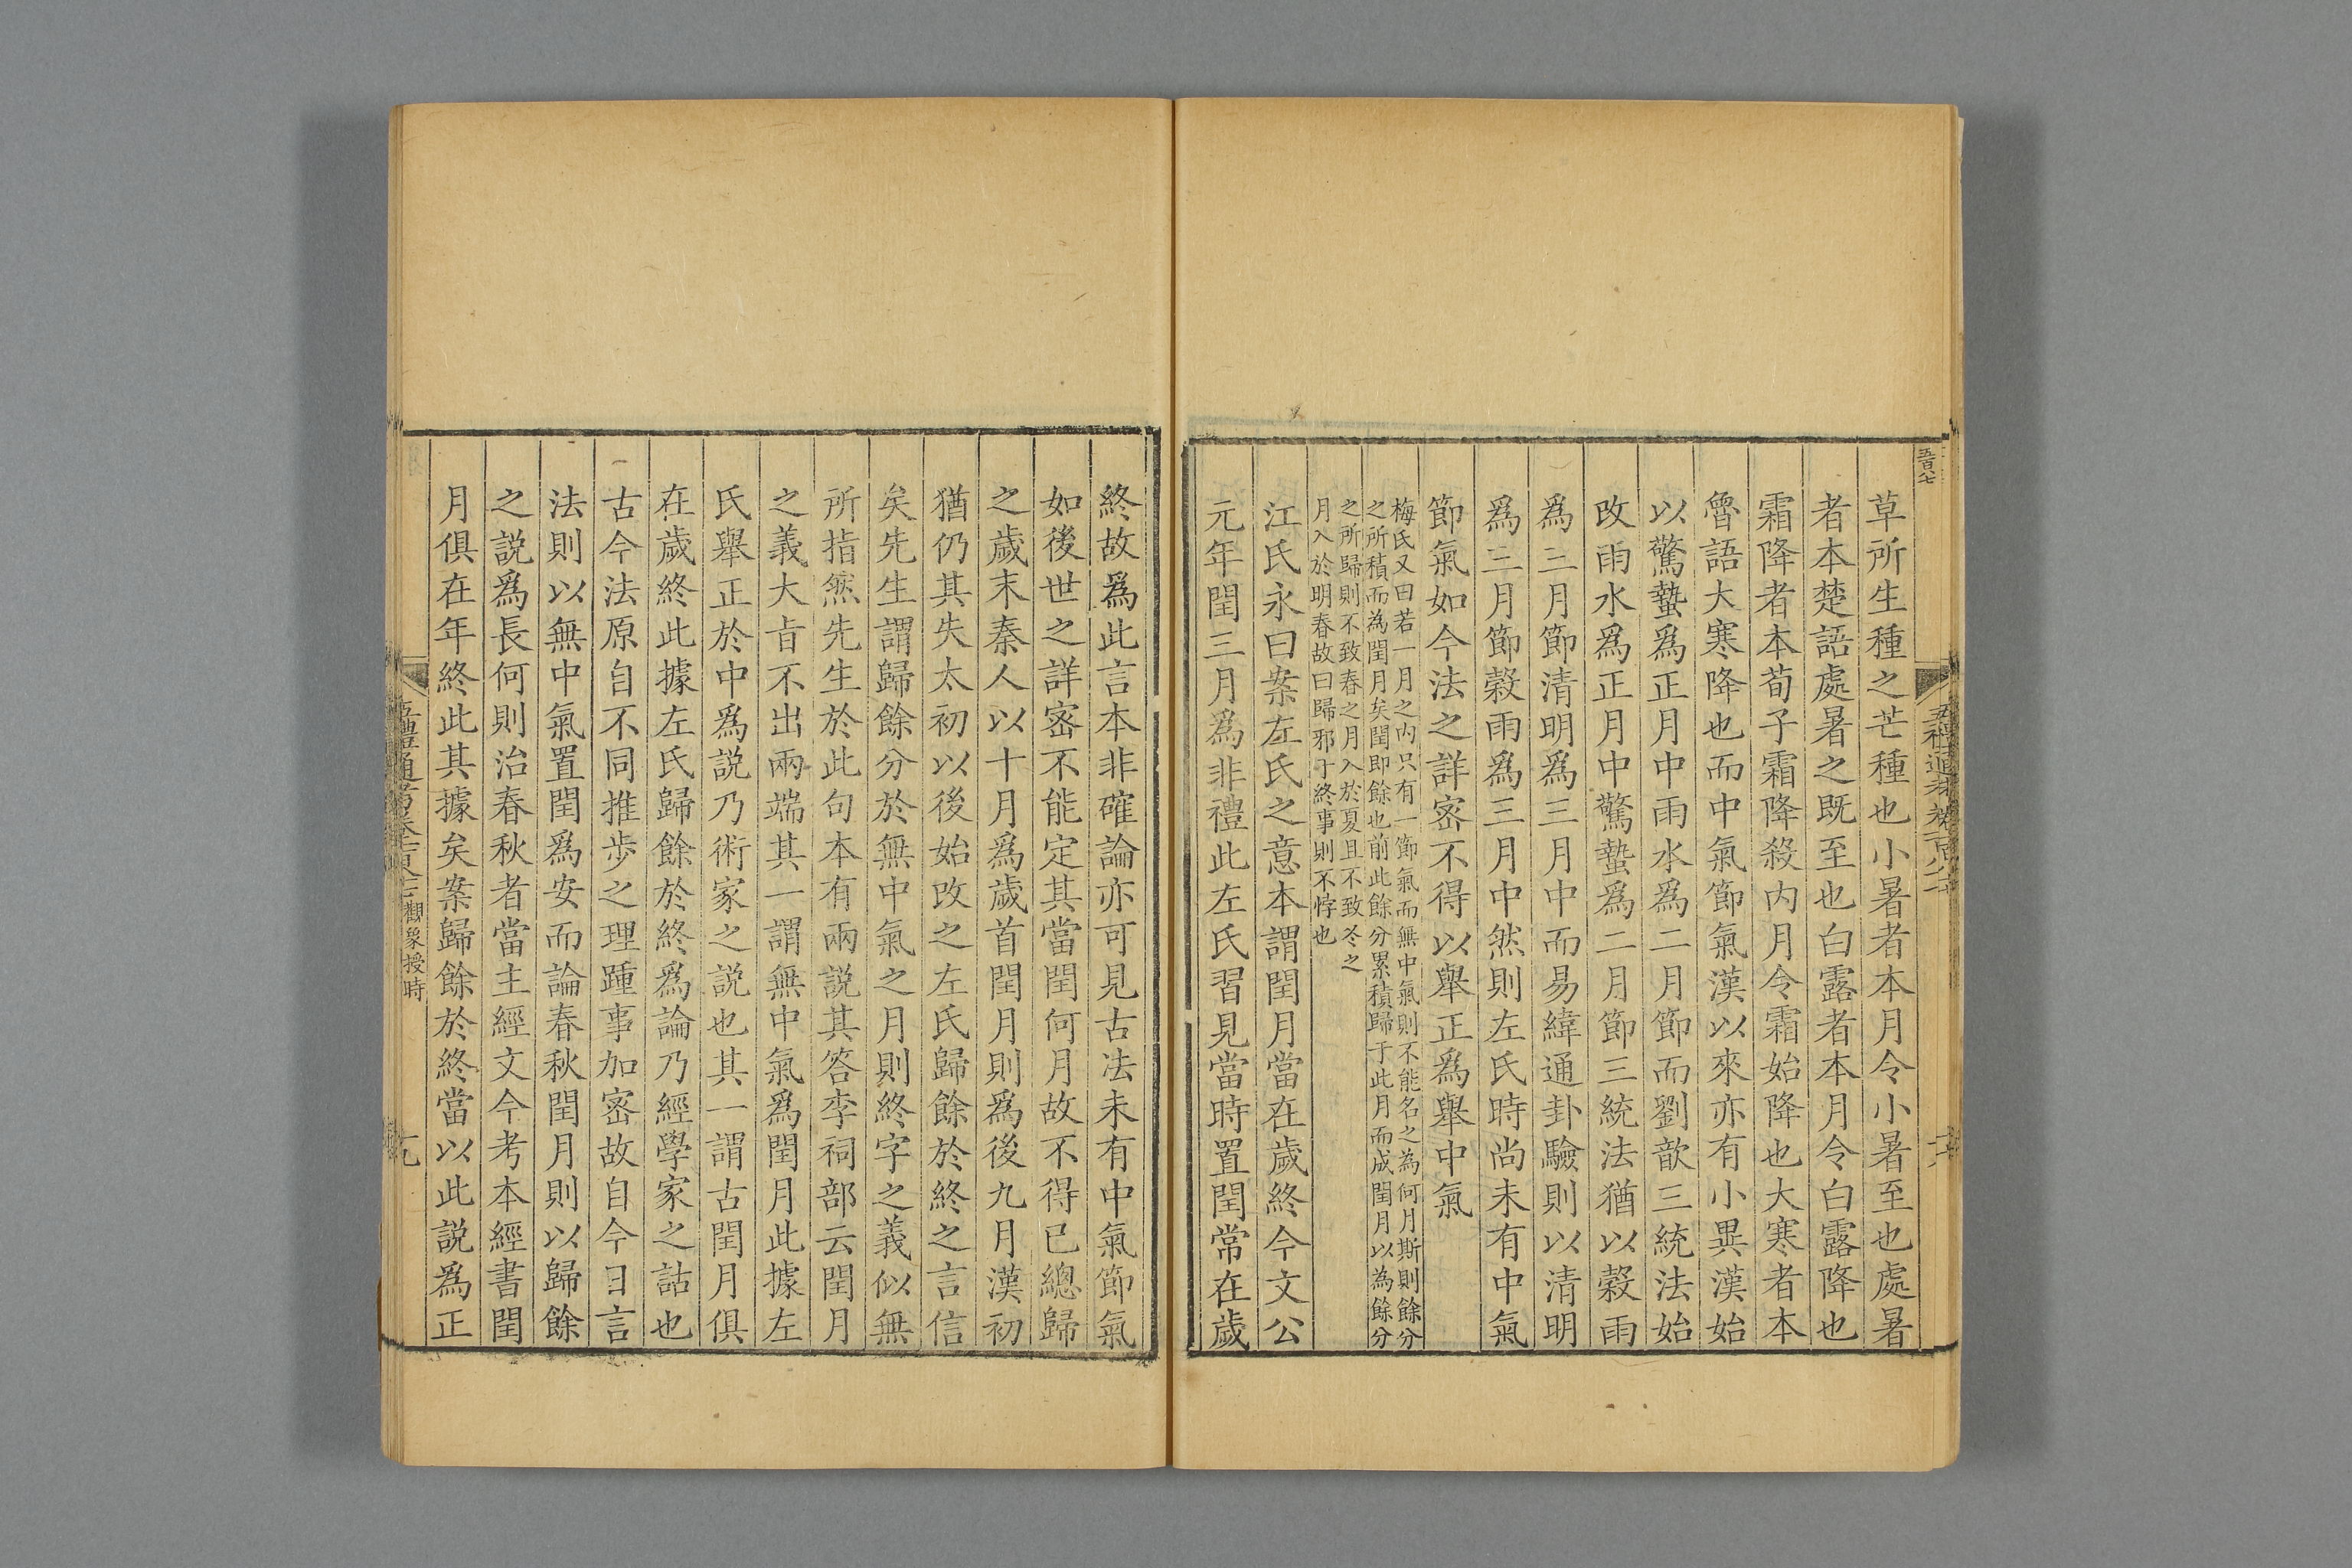 五百七
草所生種之芒種也小暑者本月令小暑至也處暑
者本楚語處暑之既至也白露者本月令白露降也
霜降者本荀子霜降殺内月令霜始降也大寒者本
魯語大寒降也而中氣節氣漢以來亦有小異漢始
以驚蟄爲正月中雨水爲二月節而劉歆三統法始
改雨水爲正月中驚蟄爲二月節三統法猶以穀雨
爲三月節清明爲三月中而易緯通卦驗則以清明
爲三月節穀雨爲三月中然則左氏時尚未有中氣
節氣如今法之詳宻不得以舉正爲舉中氣
梅氏又曰若一月之内只有一節氣而無中氣則不能名之為何月斯則餘分
之所積而為閏月矣閏即餘也前此餘分累積歸于此月而成閏月以為餘分
之所歸則不致春之月入於夏且不致冬之
月入於明春故曰歸邪于終事則不悖也
江氏永曰案左氏之意本謂閏月當在歲終今文公
元年閏三月爲非禮此左氏習見當時置閏常在歲
終故爲此言本非確論亦可見古法未有中氣節氣
如後世之詳宻不能定其當閏何月故不得已總歸
之歲末秦人以十月爲歲首閏月則爲後九月漢初
猶仍其失太初以後始改之左氏歸餘於終之言信
矣先生謂歸餘分於無中氣之月則終字之義似無
所指然先生於此句本有兩說其答李祠部云閏月
之義大㫖不出兩端其一謂無中氣爲閏月此據左
氏舉正於中爲說乃術家之說也其一謂古閏月俱
在歲終此據左氏歸餘於終爲論乃經學家之詁也
古今法原自不同推步之理踵事加宻故自今日言
法則以無中氣置閏爲安而論春秋閏月則以歸餘
之說爲長何則治春秋者當主經文今考本經書閏
月俱在年終此其據矣案歸餘於終當以此說爲正
觀象授時